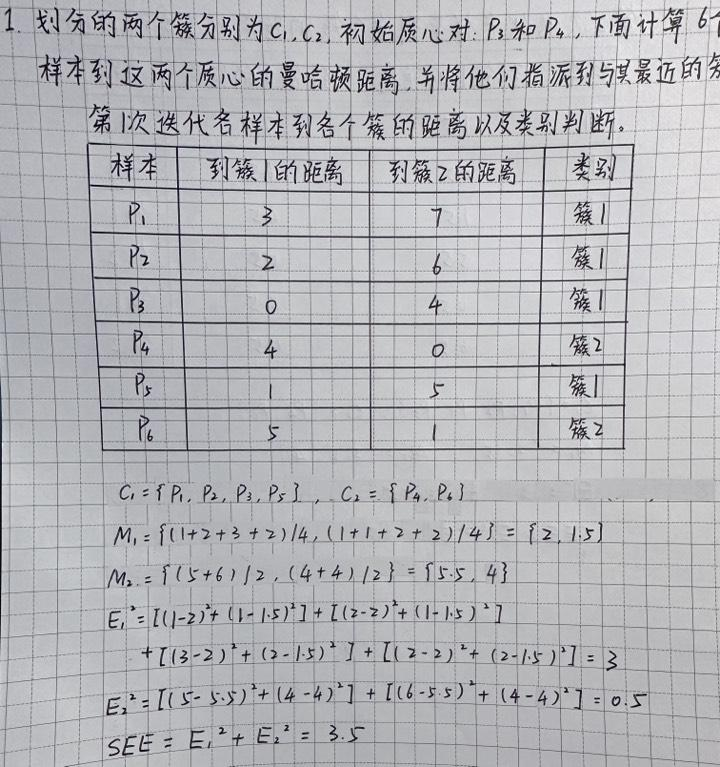 1. 划分的两个簇分别为C₁,C₂, 初始质心对: P₃和P₄, 下面计算6个
样本到这两个质心的曼哈顿距离, 并将他们指派到与其最近的
第1次迭代各样本到各个簇的距离以及类别判断。
样本 到簇1的距离 到簇2的距离 类别
P₁ 3 7 簇1
P₂ 2 6 簇1
P₃ 0 4 簇1
P₄ 4 0 簇2
P₅ 1 5 簇1
P₆ 5 1 簇2
C₁={P₁, P₂, P₃, P₅}, C₂={P₄, P₆}
M₁={(1+2+3+2)/4, (1+1+2+2)/4}={2, 1.5}
M₂={(5+6)/2, (4+4)/2}={5.5, 4}
E₁²=[(1-2)²+(1-1.5)²]+[(2-2)²+(1-1.5)²]
+[(3-2)²+(2-1.5)²]+[(2-2)²+(2-1.5)²]=3
E₂²=[(5-5.5)²+(4-4)²]+[(6-5.5)²+(4-4)²]=0.5
SEE=E₁²+E₂²=3.5